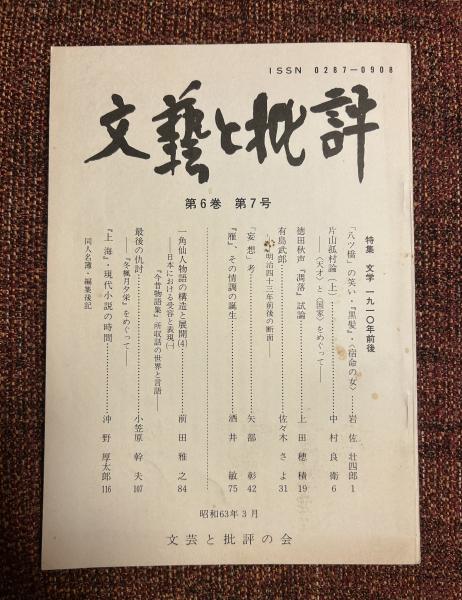 ISSN 0287-0908
文藝と批評
第6巻 第7号
特集 文学 一九一〇年前後
「八ツ橋」の笑い・『黒髪』・〈宿命の女〉 岩佐壮四郎 1
片山孤村論(上) 中村良衛 6
――〈天才〉と〈国家〉をめぐって――
徳田秋声『凋落』試論 上田穂積 19
有島武郎 佐々木さよ 31
――明治四十三年前後の断面――
「妄想」考 矢部彰 42
『雁』、その情調の誕生 酒井敏 75
一角仙人物語の構造と展開(4) 前田雅之 84
――日本における受容と表現(一)
『今昔物語集』所収話の世界と言語――
最後の仇討 小笠原幹夫 107
――『冬楓月夕栄』をめぐって――
『上海』・現代小説の時間 沖野厚太郎 116
同人名簿・編集後記
昭和63年3月
文芸と批評の会